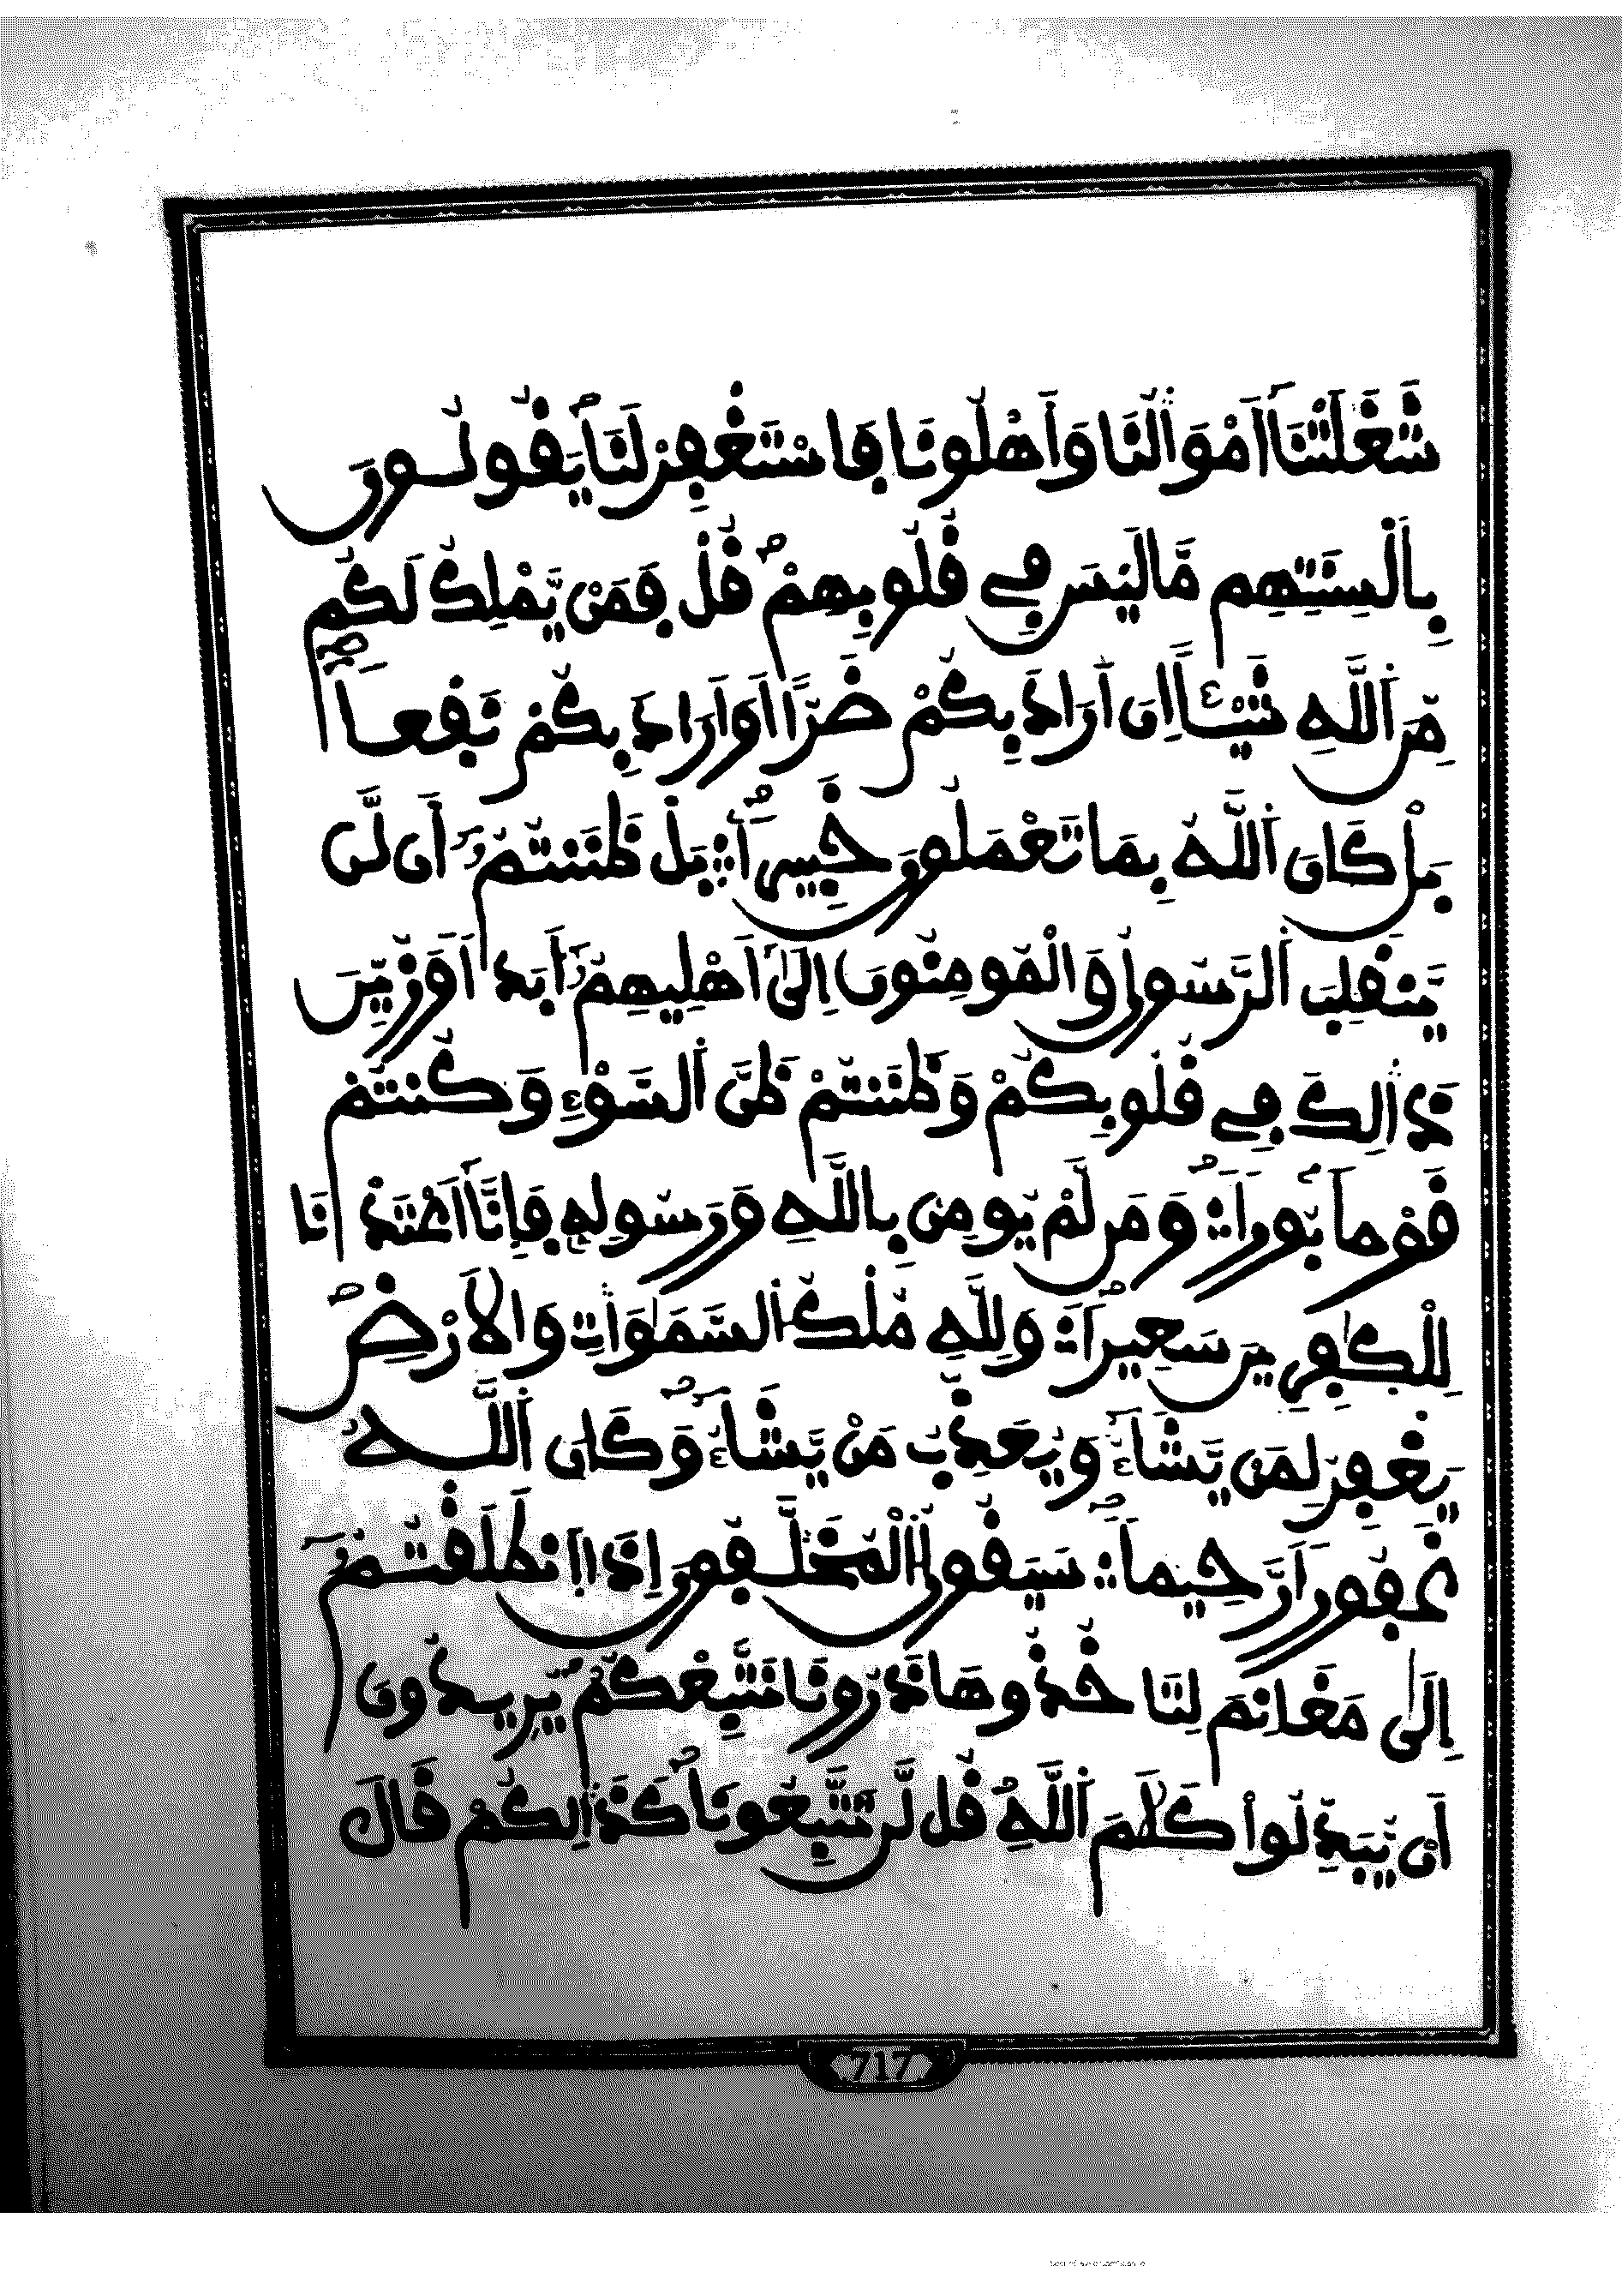 شَغَلَتْنَا أَمْوَالُنَا وَأَهْلُونَا فَاسْتَغْفِرْ لَنَا يَقُولُونَ
بِأَلْسِنَتِهِم مَّا لَيْسَ فِي قُلُوبِهِمْ قُلْ فَمَنْ يَّمْلِكُ لَكُم
مِّنَ اَللَّهِ شَيْـًٔا اِنَ اَرَادَ بِكُمْ ضَرّاً اَوَ اَرَادَ بِكُمْ نَفْعاً
بَلْ كَانَ اَللَّهُ بِمَا تَعْمَلُونَ خَبِيراً بَلْ ظَنَنتُمُ أَن لَّنْ
يَّنقَلِبَ اَلرَّسُولُ وَالْمُومِنُونَ إِلَىٰ أَهْلِيهِمُ أَبَداً وَزُيِّنَ
ذَٰلِكَ فِي قُلُوبِكُمْ وَظَنَنتُمْ ظَنَّ اَلسَّوْءِ وَكُنتُمْ
قَوْماً بُوراً وَمَن لَّمْ يُومِنْ بِاللَّهِ وَرَسُولِهِ فَإِنَّا أَعْتَدْنَا
لِلْكَٰفِرِينَ سَعِيراً وَلِلَّهِ مُلْكُ اَلسَّمَٰوَٰتِ وَالاَرْضِ
يَغْفِرُ لِمَنْ يَّشَاءُ وَيُعَذِّبُ مَنْ يَّشَاءُ وَكَانَ اَللَّهُ
غَفُوراً رَّحِيماً سَيَقُولُ اُلْمُخَلَّفُونَ إِذَا اَنطَلَقْتُمُ
إِلَىٰ مَغَانِمَ لِتَاخُذُوهَا ذَرُونَا نَتَّبِعْكُمْ يُرِيدُونَ
أَنْ يُّبَدِّلُوا كَلَٰمَ اَللَّهِ قُل لَّن تَتَّبِعُونَا كَذَٰلِكُمْ قَالَ
717